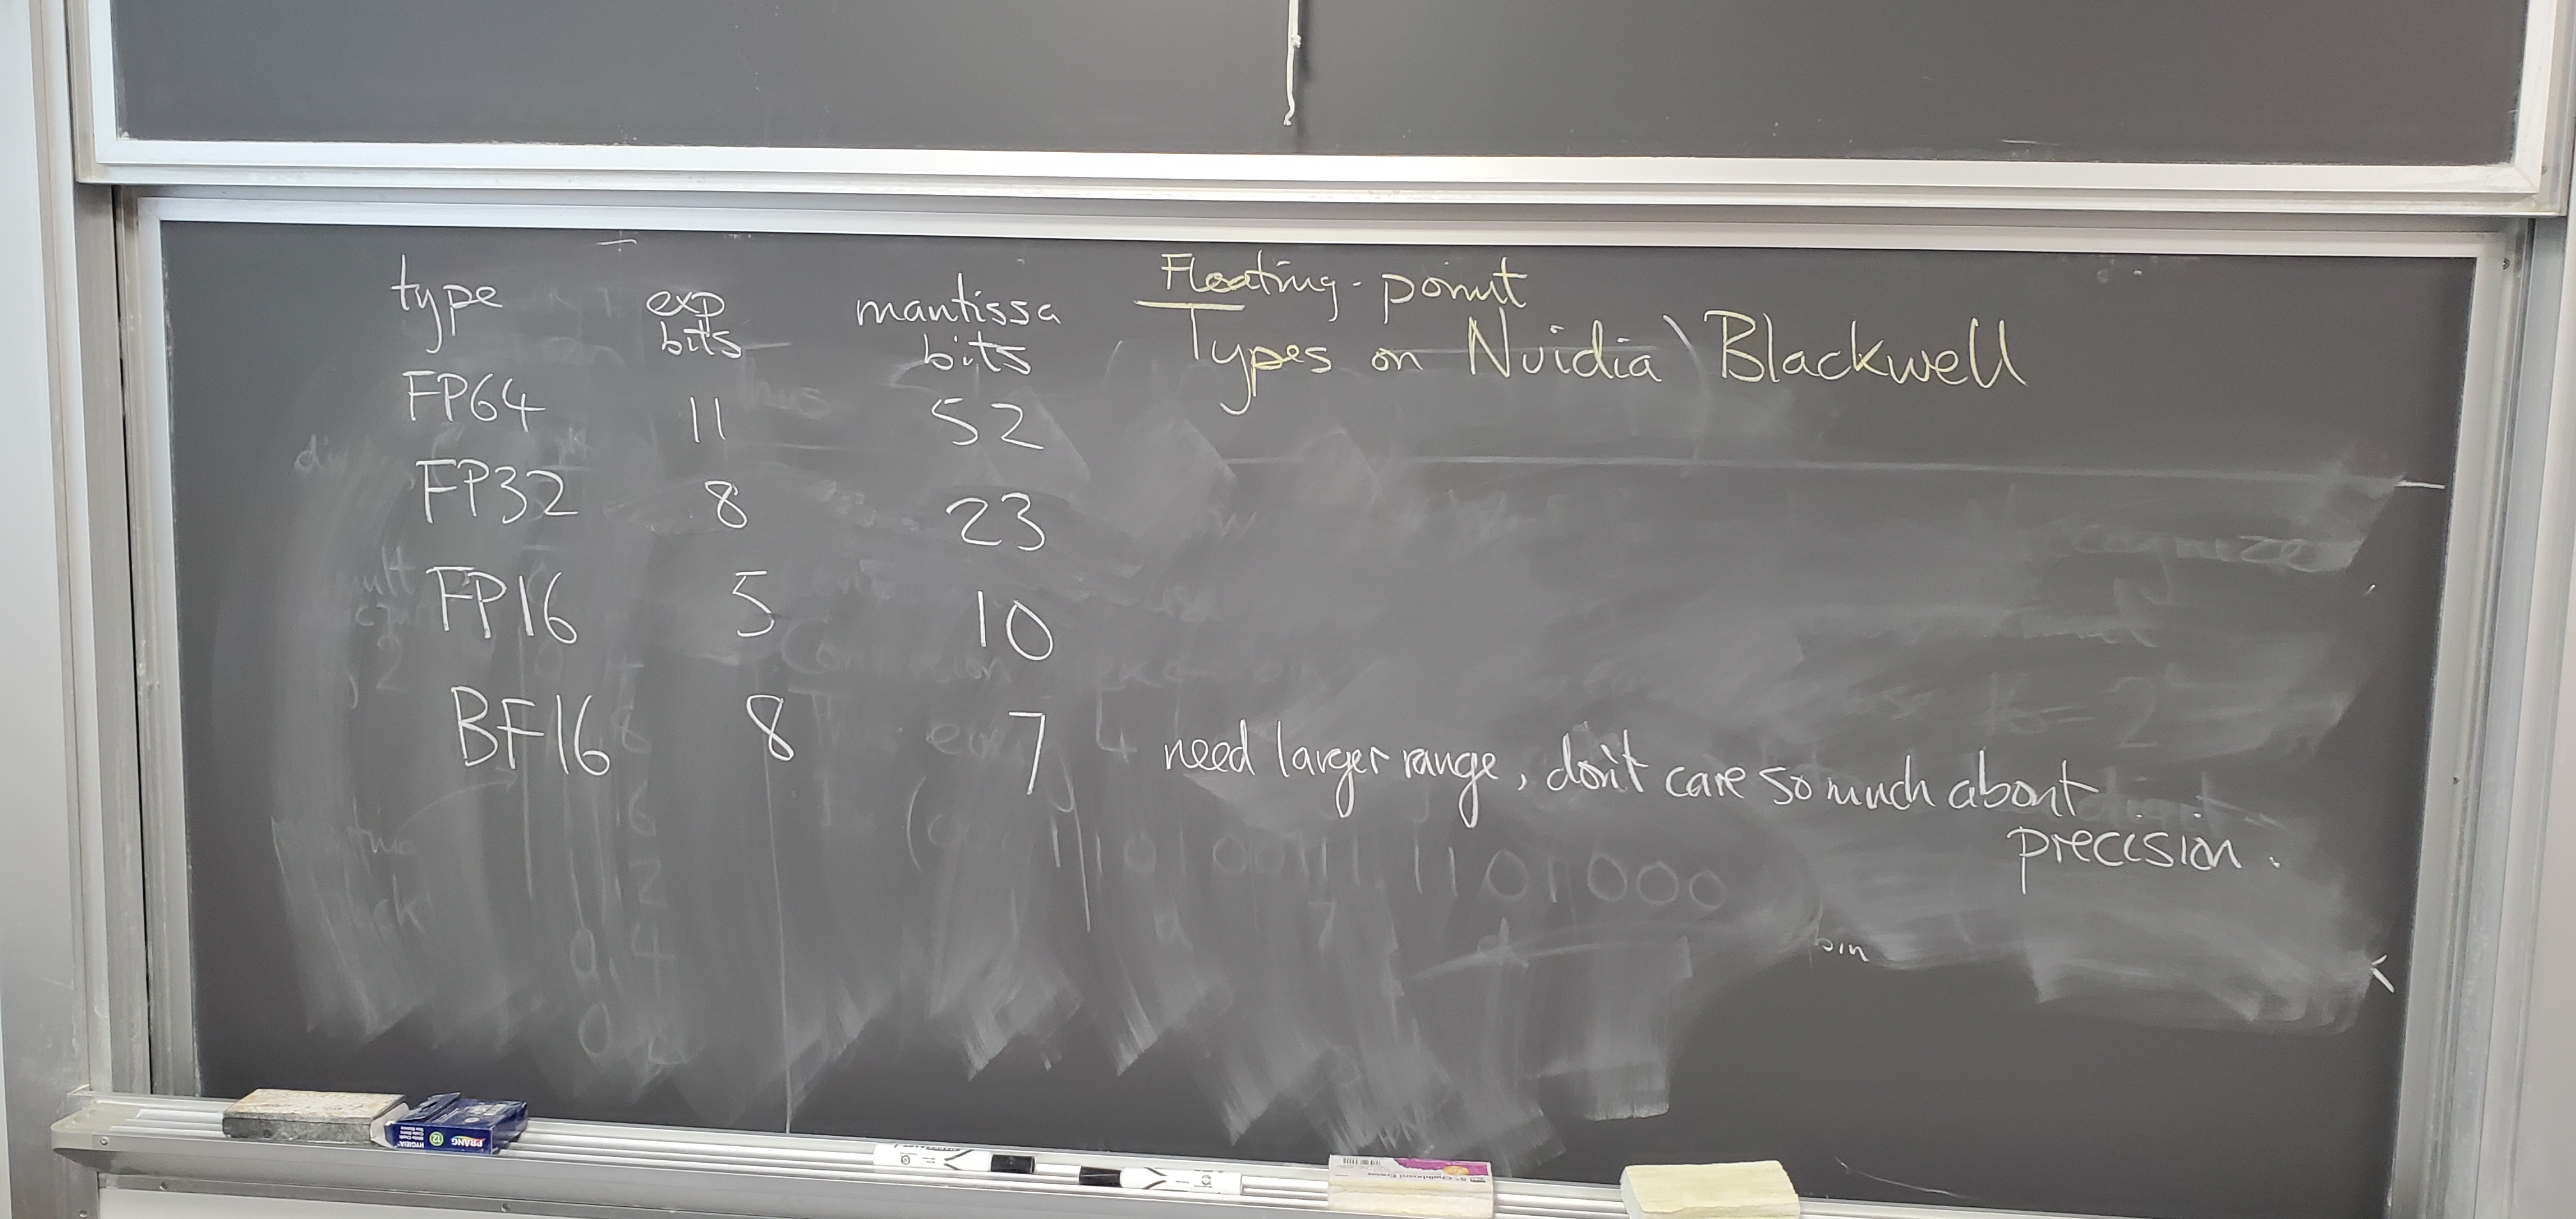 Floating-point
Types on Nvidia Blackwell
type exp bits mantissa bits
FP64 11 52
FP32 8 23
FP16 5 10
BF16 8 7 need larger range, don't care so much about
precision.
bin
PRANG
HYGIEIA
12